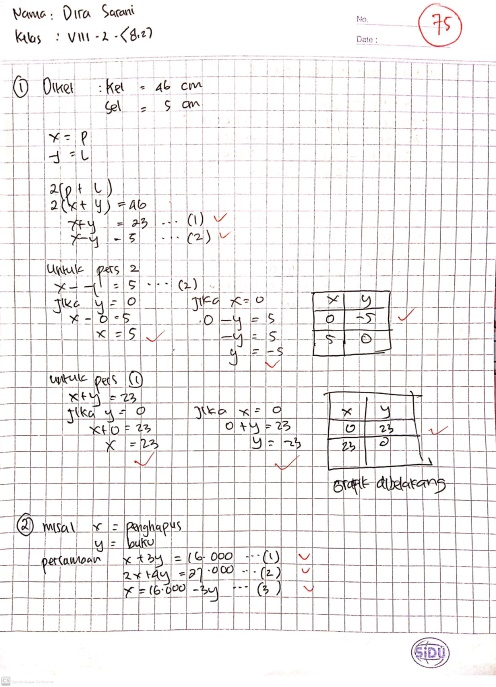 Nama : Dira Sarani
Kelas : VIII - 2 - (8.2)
No.
Date :
75
① Diket : Kel = 46 cm
Sel = 5 cm
x = P
y = L
2(P + L)
2(x + y) = 46
x+y = 23 ... (1) ✓
x-y = 5 ... (2) ✓
Untuk pers 2
x - y = 5 ... (2)
Jika y = 0
x - 0 = 5
x = 5 ✓
Jika x = 0
0 - y = 5
-y = 5
y = -5 ✓
x y
0 -5 ✓
5 0
untuk pers ①
x+y = 23
Jika y = 0
x+0 = 23
x = 23 ✓
Jika x = 0
0 + y = 23
y = 23 ✓
x y
0 23 ✓
23 0
Grafik dibelakang
② misal x = penghapus
y = buku
persamaan x + 3y = 16.000 ... (1) ✓
2x + 4y = 27.000 ... (2) ✓
x = 16.000 - 3y ... (3) ✓
SIDU